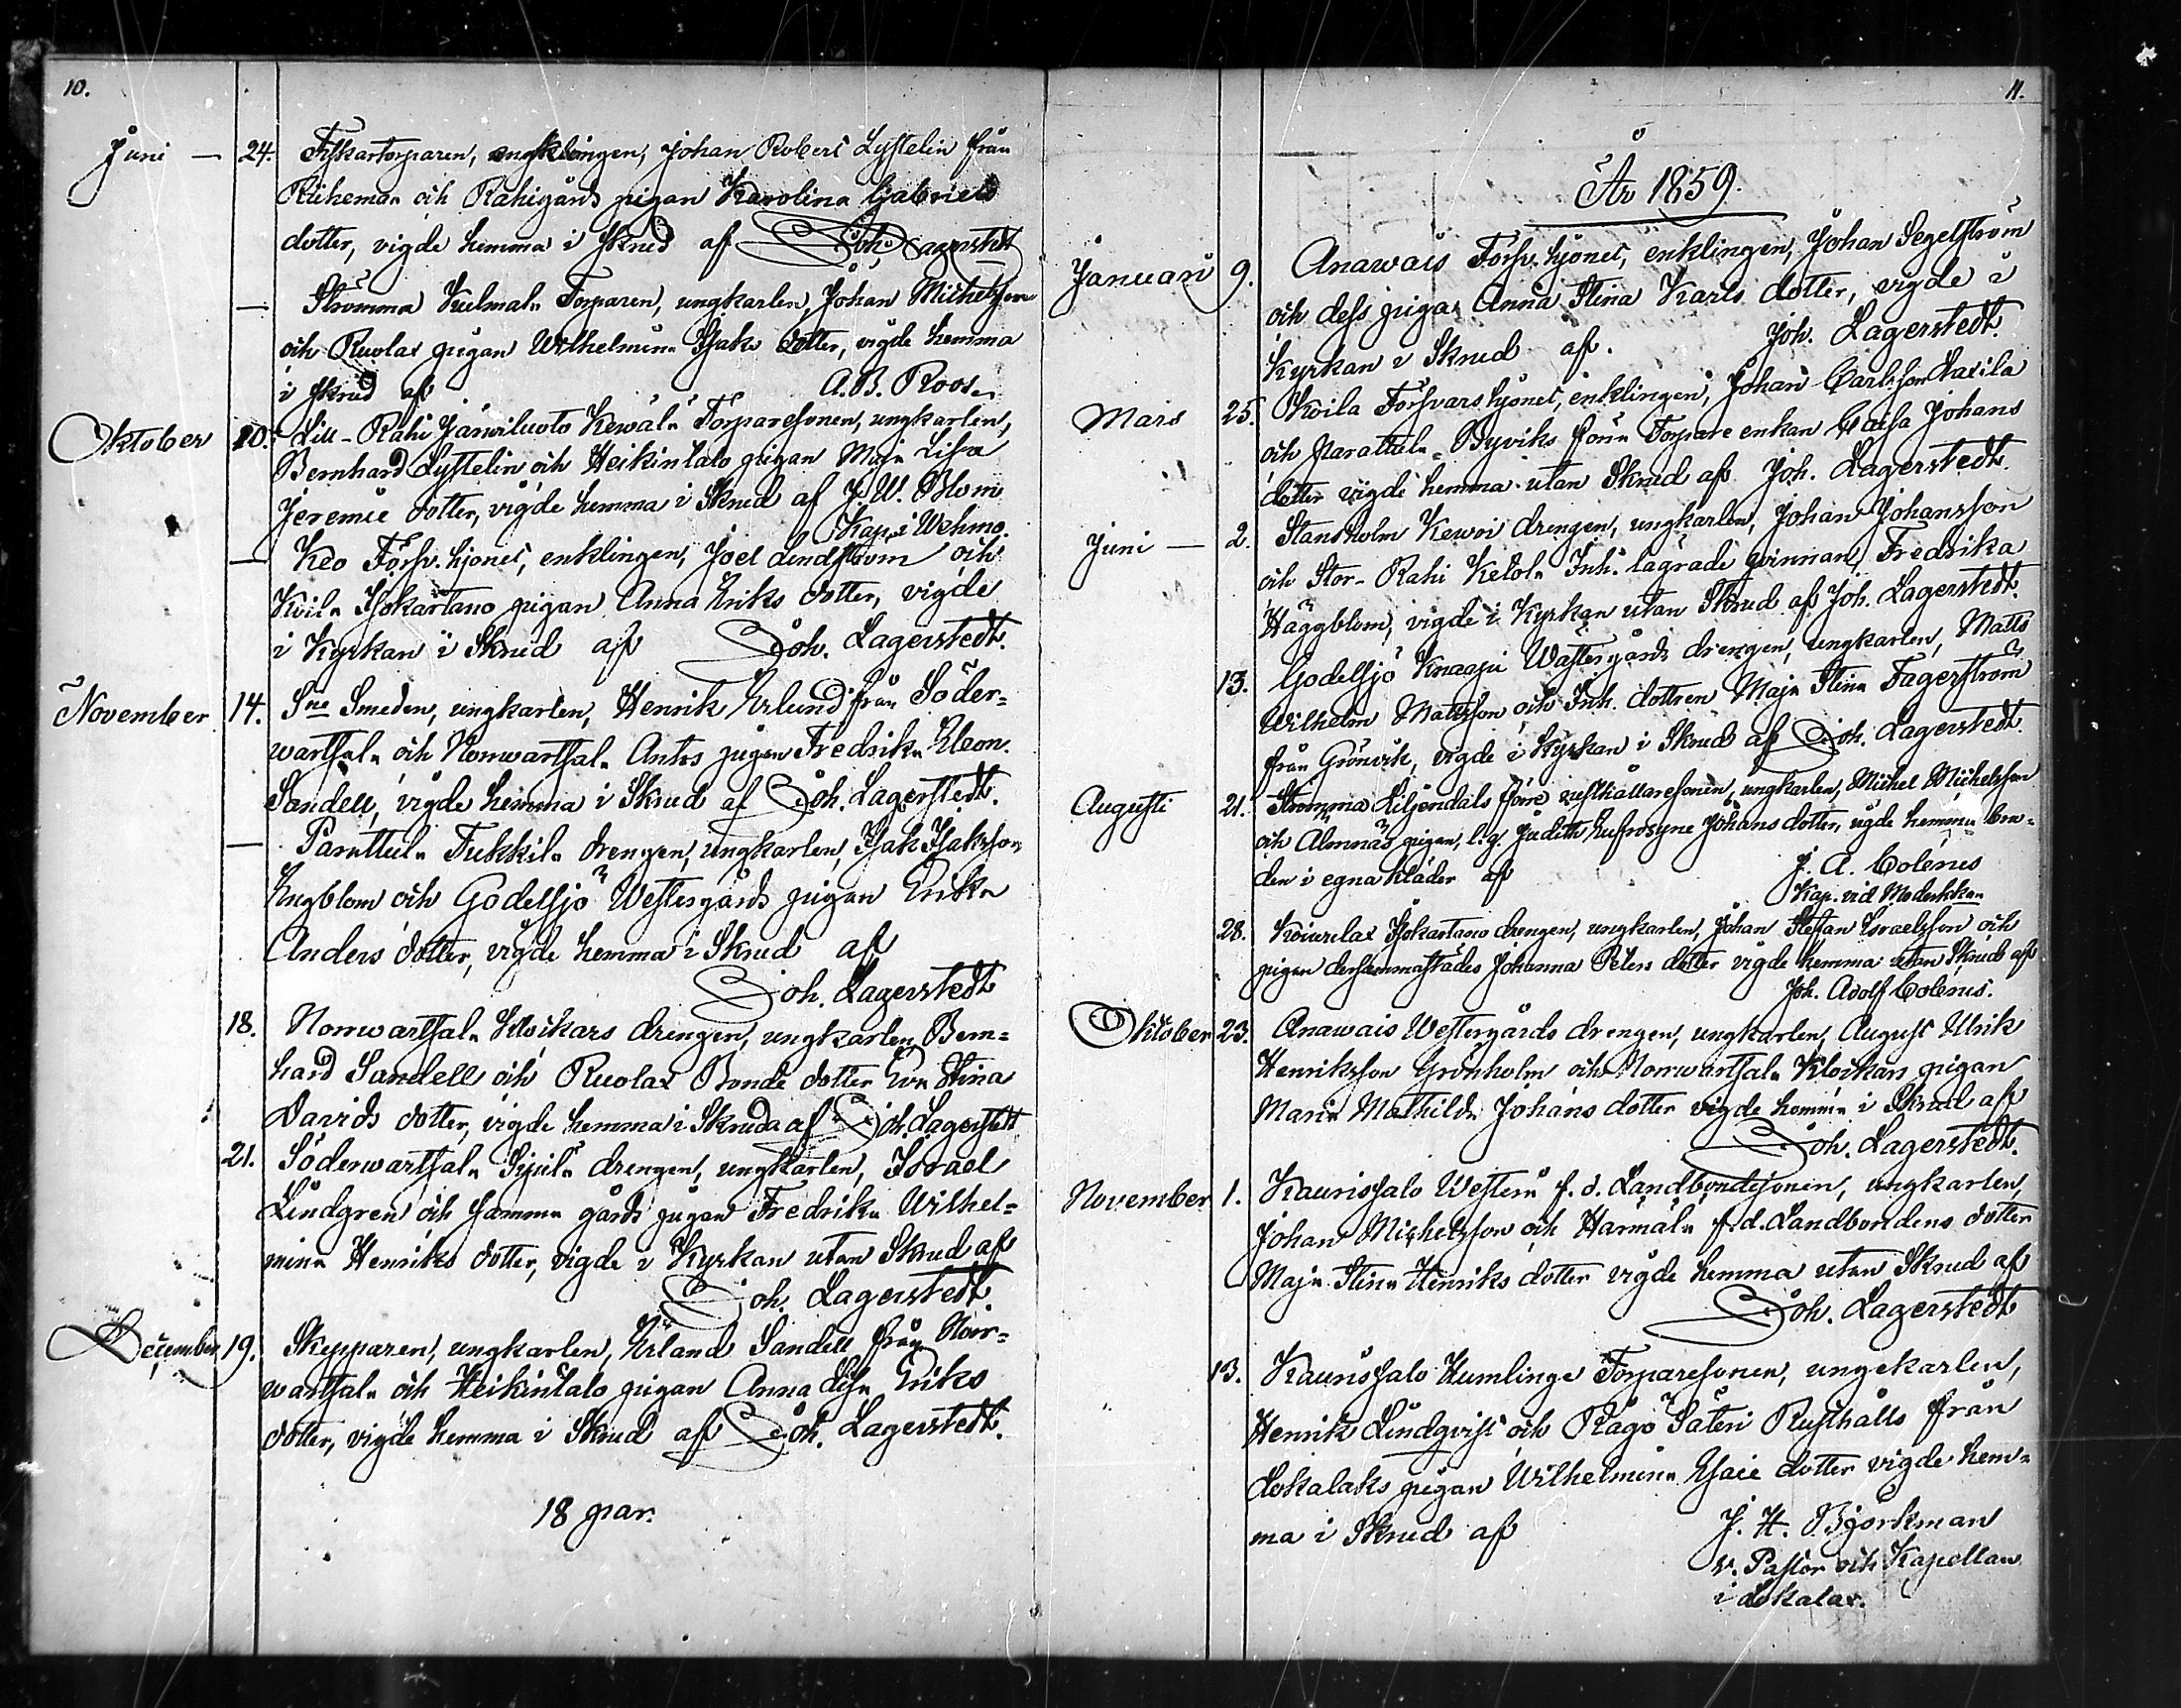 10.
Juni — 24. Fiskartorparen, engklingen, Johan Robert Lystelin från
Riihema och Rahigårds pigan Karolina Gabriels
dotter, vigde hemma i skrud af Joh. Lagerstedt
— Strömma Kulmala Torparen, ungkarlen, Johan Michelsson
och Ruolax pigan Wilhelmina Isaks dotter, vigde hemma
i skrud af A. B. Roos.
Oktober 10. Lill-Rahi Järwiluoto Kewäla Torparesonen, ungkarlen,
Bernhard Lystelin och Heikintalo pigan Maja Lisa
Jeremie dotter, vigde hemma i Skrud af J. W. Blom
Kap. i Wehmo.
— Keo Försv. hjonet, enklingen, Joel Lindström och
Koila Isokartano pigan Anna Eriks dotter, vigde
i Kyrkan i Skrud af Joh. Lagerstedt.
November 14. Sne Smeden, ungkarlen, Henrik Erlund från Söder=
wartsala och Norrwartsala Antes pigan Fredrika Eleon.
Sandell, vigde hemma i Skrud af Joh. Lagerstedt.
— Parattula Tukkila drengen, ungkarlen, Isak Isaksson
Engblom och Godelsjö Westergårds pigan Erika
Anders dotter, vigde hemma i Skrud af
Joh. Lagerstedt
18. Norrwartsala Klockars drengen, ungkarlen Bern=
hard Sandell och Ruolax Bonde dotter Eva Stina
Davids dotter, vigde hemma i Skruda af Joh. Lagerstedt
21. Söderwartsala Sipilä drengen, ungkarlen, Israel
Lindgren och samma gårds pigan Fredrika Wilhel=
mina Henriks dotter, vigde i Kyrkan utan Skrud af
Joh. Lagerstedt.
December 19. Skepparen, ungkarlen, Erland Sandell från Norr=
wartsala och Heikintalo pigan Anna Lisa Eriks
dotter, vigde hemma i Skrud af Joh. Lagerstedt.
18 par.
11.
År 1859.
Januari 9. Anawais Försv. hjonet, enklingen, Johan Segelström
och dess piga Anna Stina Karls dotter, vigde i
Kyrkan i Skrud af. Joh. Lagerstedt.
Mars 25. Koila Försvars hjonet, enklingen, Johan Carlsson Laxila
och Parattula Byviks förra Torpare enkan Caisa Johans
dotter vigde hemma utan Skrud af Joh. Lagerstedt.
Juni — 2. Stansholm Kewoi drengen, ungkarlen, Johan Johansson
och Stor-Rahi Ketola Inh. lägrade qvinnan, Fredrika
Häggblom, vigde i Kyrkan utan Skrud af Joh. Lagerstedt.
13. Godelsjö Knaapi Wästergårds drengen, ungkarlen, Matts
Wilhelm Mattsson och Inh. dottren Maja Stina Fagerström
från Grönvik, vigde i Kyrkan i Skrud af Joh. Lagerstedt.
Augusti 21. Strömma Liljendals förre rusthållaresonen, ungkarlen, Michel Michelsson
och Almnäs pigan, l. q. Judith Eufrosyne Johans dotter, vigde hemma bru=
den i egna kläder af J. A. Colérus
Kap. vid Moderkkan
28. Koivurlax Isokartano drengen, ungkarlen, Johan Stefan Israelsson och
pigan dersammastädes Johanna Peters dotter vigde hemma utan Skrud af
Joh. Adolf Colérus.
Oktober 23. Anawais Westergårds drengen, ungkarlen, August Ulrik
Henriksson Grönholm och Norrwartsala Klockars pigan
Maria Mathilda Johans dotter vigde hemma i Skrud af
Joh. Lagerstedt.
November 1. Kaurissalo Westerå f. d. Landbondesonen, ungkarlen,
Johan Michelsson och Härmälä f. d. Landbondens dotter
Maja Stina Henriks dotter vigde hemma utan Skrud af
Joh. Lagerstedt
13. Kaurissalo Humlinge Torparesonen, ungekarlen,
Henrik Lindqvist och Rågö Säteri Rusthålls från
Lokalaks pigan Wilhelmina Esaie dotter vigde hem=
ma i Skrud af J. H. Björkman
v. Pastor och Kapellan
i Lokalax.